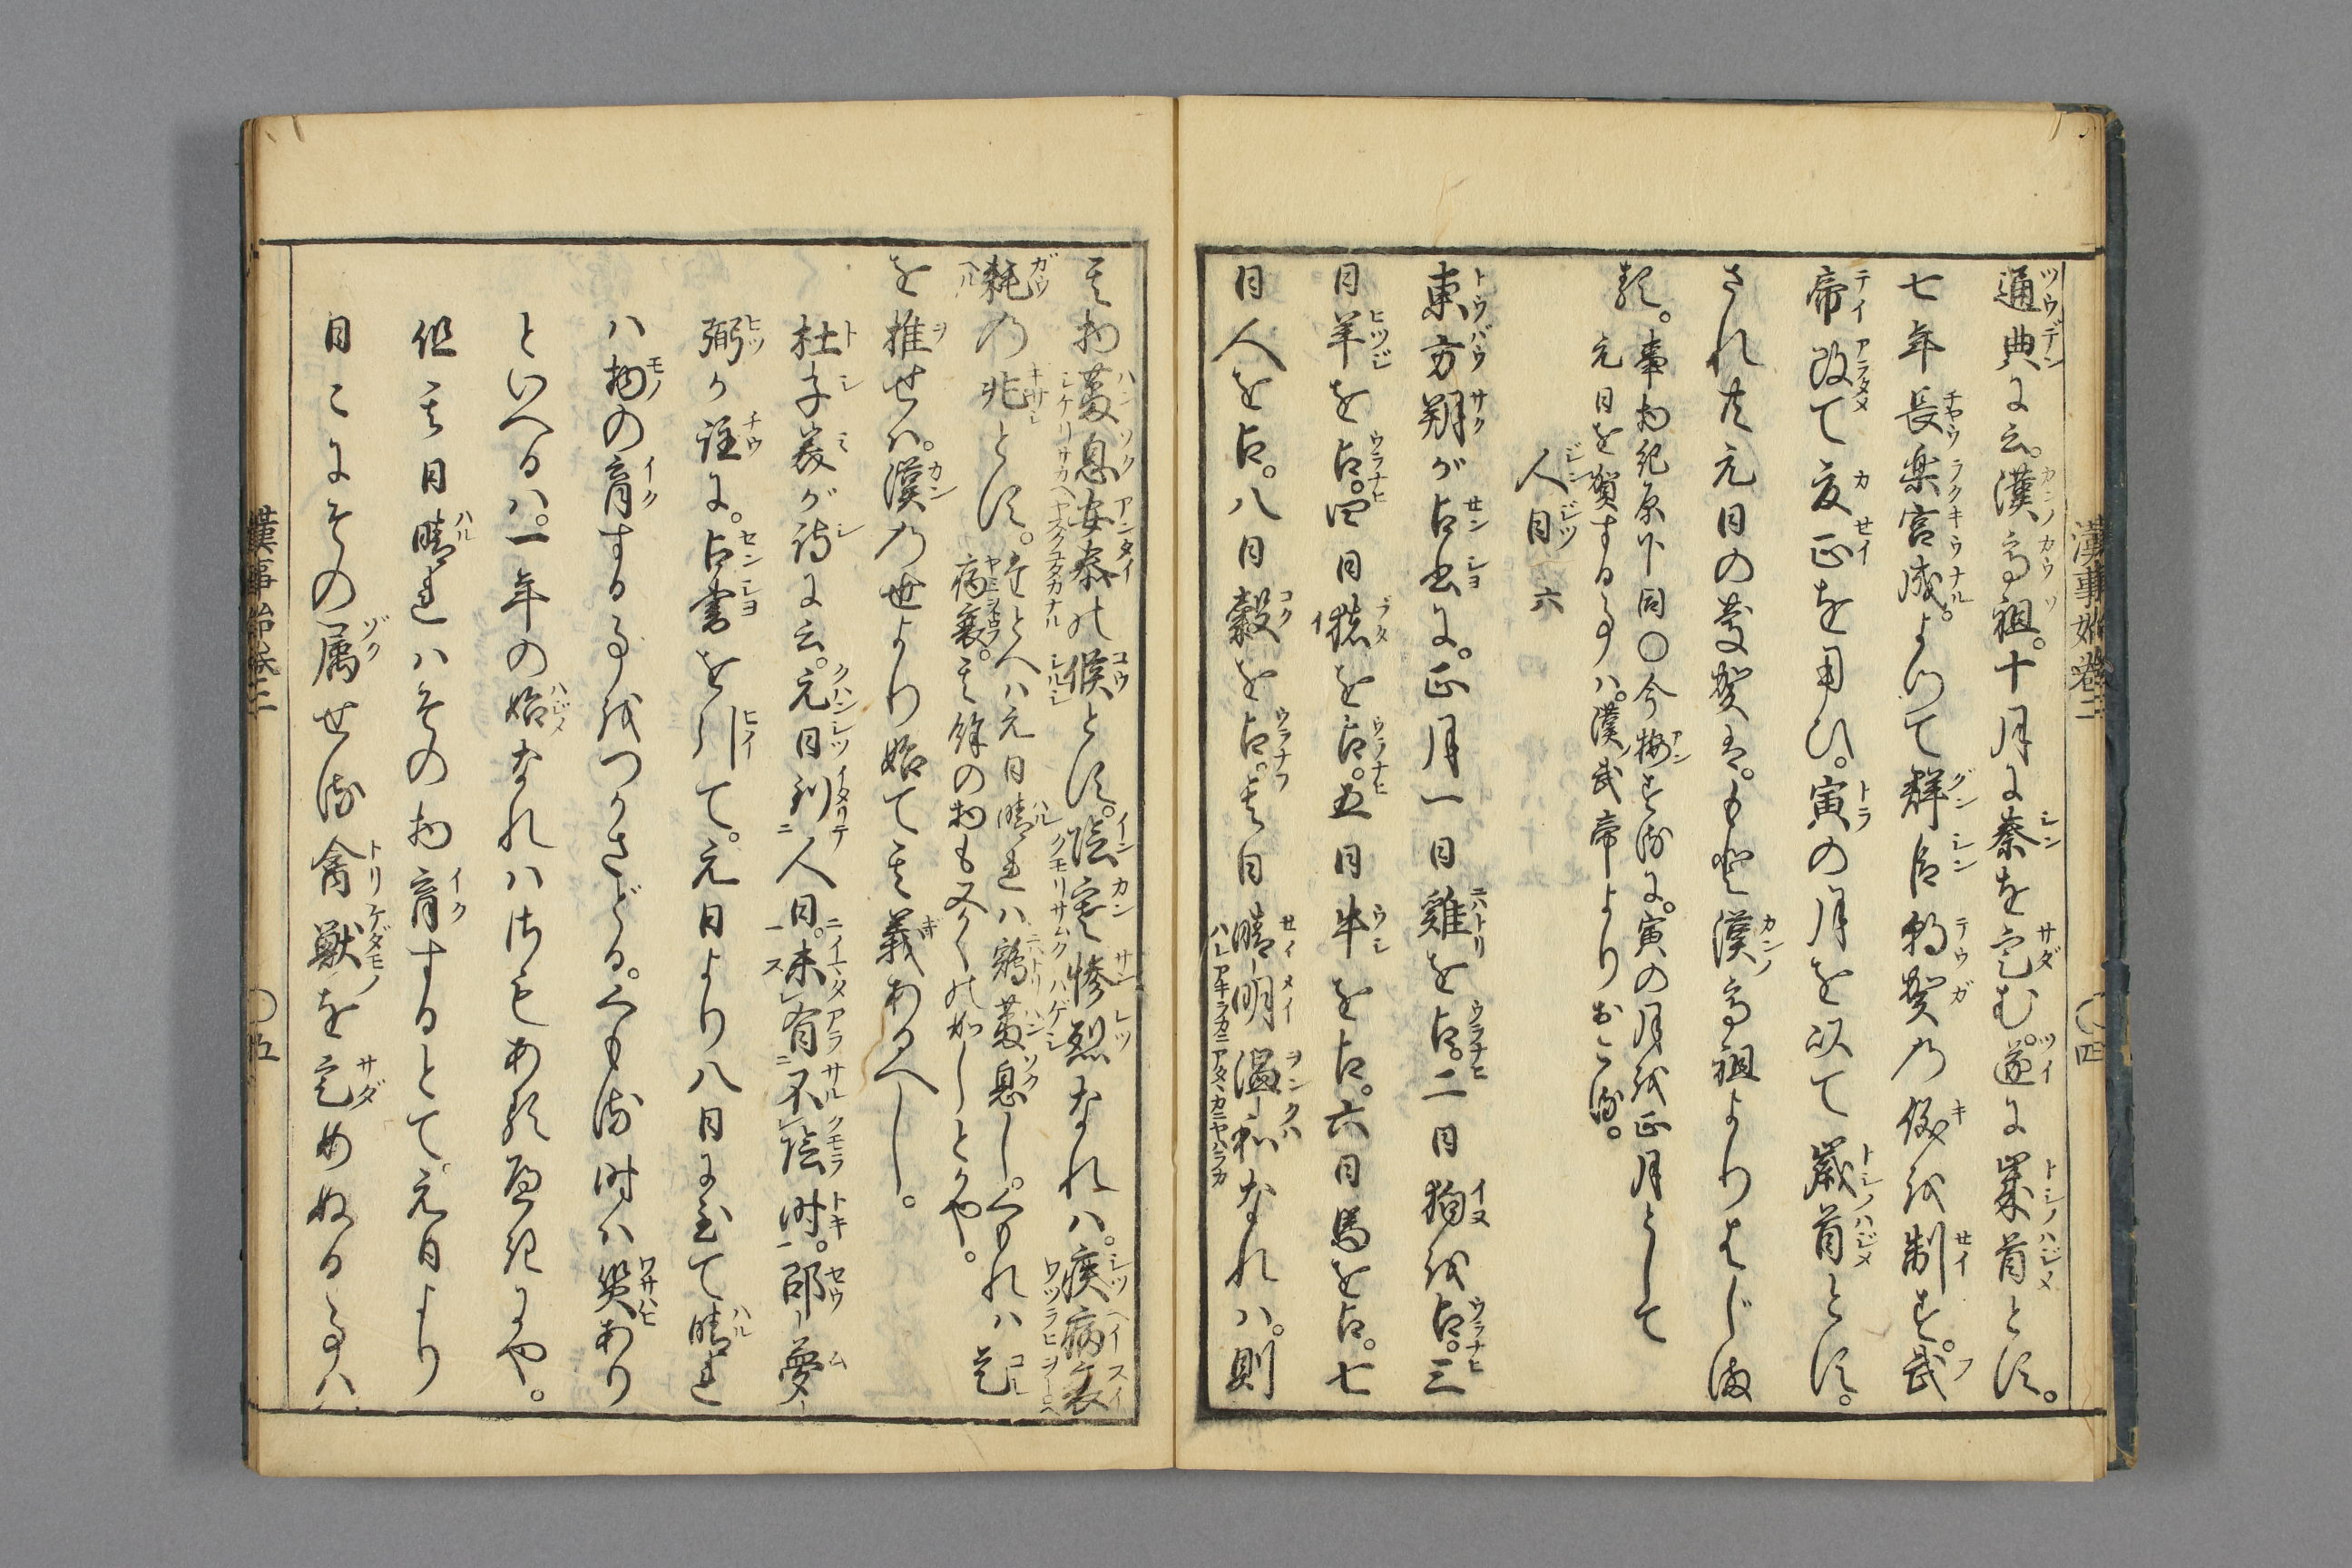 漢事始巻二 〇四
通典に云。漢高祖。十月に秦を定む。遂に歳首とす。
七年長楽宮成。よつて群臣朝賀の儀を制す。武
帝改て夏正を用ひ。寅の月を以て歳首とす。
され共元日の慶賀は。もと漢高祖よりはじま
る。事物紀原下同〇今按するに。寅の月を正月として
元日を賀する事ハ。漢ノ武帝よりおこる。
人日 六
東方朔が占書に。正月一日雞を占。二日狗を占。三
日羊を占。四日猪を占。五日牛を占。六日馬を占。七
日人を占。八日穀を占。其日晴明温和なれハ。則
其物蕃息安泰の候とす。陰寒惨烈なれハ。疾病衰
耗の兆とす。たとへハ元日晴れハ鶏蕃息し。くもれハ
病衰。其餘の物も又かくの如しとかや。是
を推せハ。漢の世より始て其義あるへし。
杜子美が詩に云。元日到人日。未有不陰時。邵夢
弼か註に。占書を引て。元日より八日に至て晴れ
ハ物の育する事をつかさどる。くもる時ハ災あり
といへるハ。一年の始なれハさもあるへきにや。
但其日晴れハその物育するとて。元日より
日ことにその属せる禽獣を定めぬる事ハ
漢事始巻二 〇五